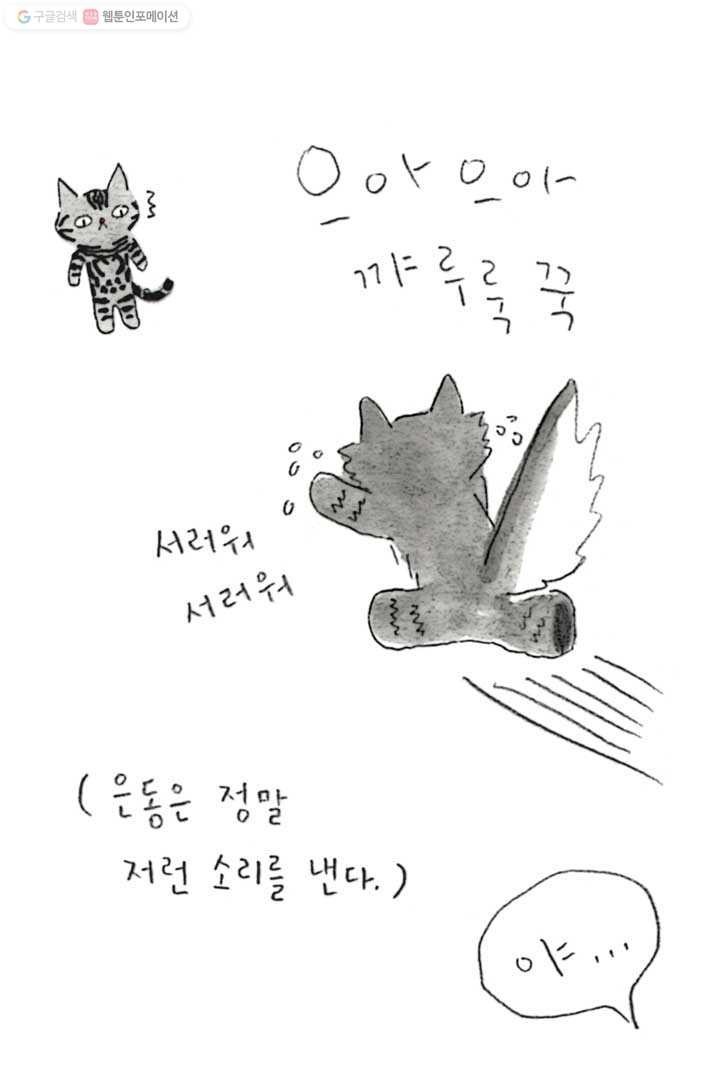 구글검색 웹툰인포메이션
으아으아
꺄루룩꾹
서러워
서러워
(은동은 정말
저런 소리를 낸다.)
야...